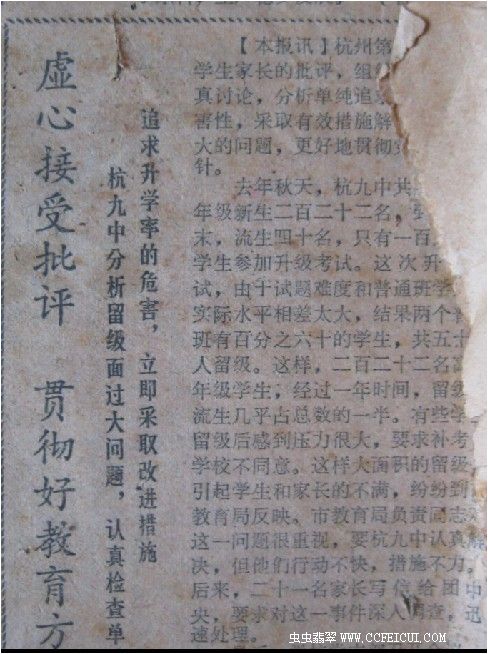 虚心接受批评 贯彻好教育方
杭九中分析留级面过大问题，认真检查单
追求升学率的危害，立即采取改进措施
【本报讯】杭州第
学生家长的批评，组
真讨论，分析单纯追
害性，采取有效措施解
大的问题，更好地贯彻
针。
去年秋天，杭九中共
年级新生二百二十二名，
末，流生四十名，只有一百
学生参加升级考试。这次升
试，由于试题难度和普通班学
实际水平相差太大，结果两个
班有百分之六十的学生，共五十
人留级。这样，二百二十二名高
年级学生，经过一年时间，留级
流生几乎占总数的一半。有些学
留级后感到压力很大，要求补考
学校不同意。这样大面积的留级
引起学生和家长的不满，纷纷到
教育局反映。市教育局负责同志对
这一问题很重视，要杭九中认真解
决，但他们行动不快，措施不力。
后来，二十一名家长写信给团中
央，要求对这一事件深入调查，迅
速处理。
虫虫翡翠 WWW.CCFEICUI.COM